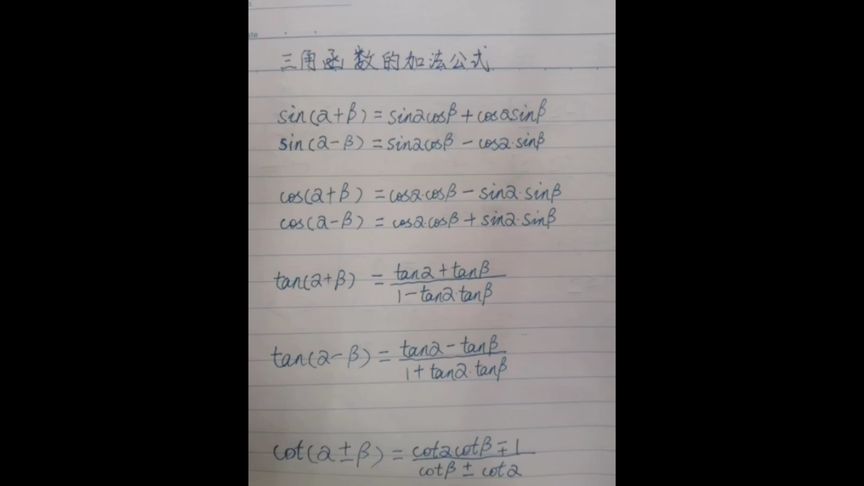 三角函数的加法公式
sin(α+β)=sinαcosβ+cosαsinβ
sin(α-β)=sinαcosβ-cosα·sinβ
cos(α+β)=cosα·cosβ-sinα·sinβ
cos(α-β)=cosα·cosβ+sinα·sinβ
tan(α+β)=\frac{tanα+tanβ}{1-tanαtanβ}
tan(α-β)=\frac{tanα-tanβ}{1+tanα·tanβ}
cot(α±β)=\frac{cotαcotβ∓1}{cotβ±cotα}